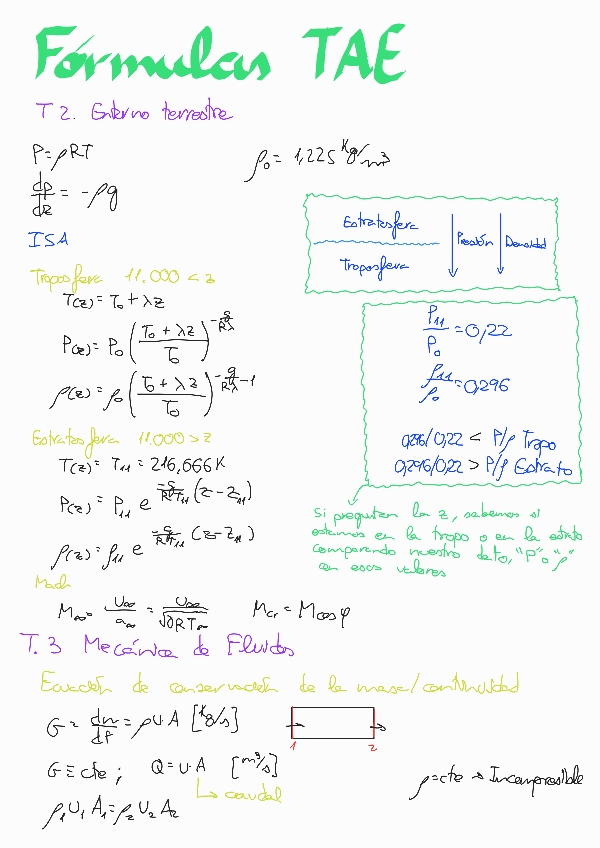 Fórmulas TAE
T2. Entorno terrestre
P = ρRT
ρ₀ = 1,225 Kg/m3
dp/dz = -ρg
ISA
Estratosfera
Troposfera
Presión
Densidad
Troposfera 11.000 < z
T(z) = T₀ + λz
P(z) = P₀ ((T₀ + λz)/T₀)^(-g/Rλ)
ρ(z) = ρ₀ ((T₀ + λz)/T₀)^(-g/Rλ - 1)
P₁₁/P₀ = 0,22
ρ₁₁/ρ₀ = 0,296
0,296/0,22 < P/ρ Tropo
0,296/0,22 > P/ρ Estrato
Estratosfera 11.000 > z
T(z) = T₁₁ = 216,666 K
P(z) = P₁₁ e^(-g/RT₁₁ (z - z₁₁))
ρ(z) = ρ₁₁ e^(-g/RT₁₁ (z - z₁₁))
Si preguntan la z, sabemos si
estamos en la tropo o en la estrato
comparando nuestro dato, "P" o "ρ"
con esos valores
Mach
M∞ = U∞/a∞ = U∞/√(γRT∞)
Mcr = M cos φ
T.3 Mecánica de Fluidos
Ecuación de conservación de la masa/continuidad
G = dm/dt = ρU·A [Kg/s]
1 2
G ≡ cte; Q = U·A [m³/s]
↳ caudal
ρ = cte → Incompresible
ρ₁U₁A₁ = ρ₂U₂A₂